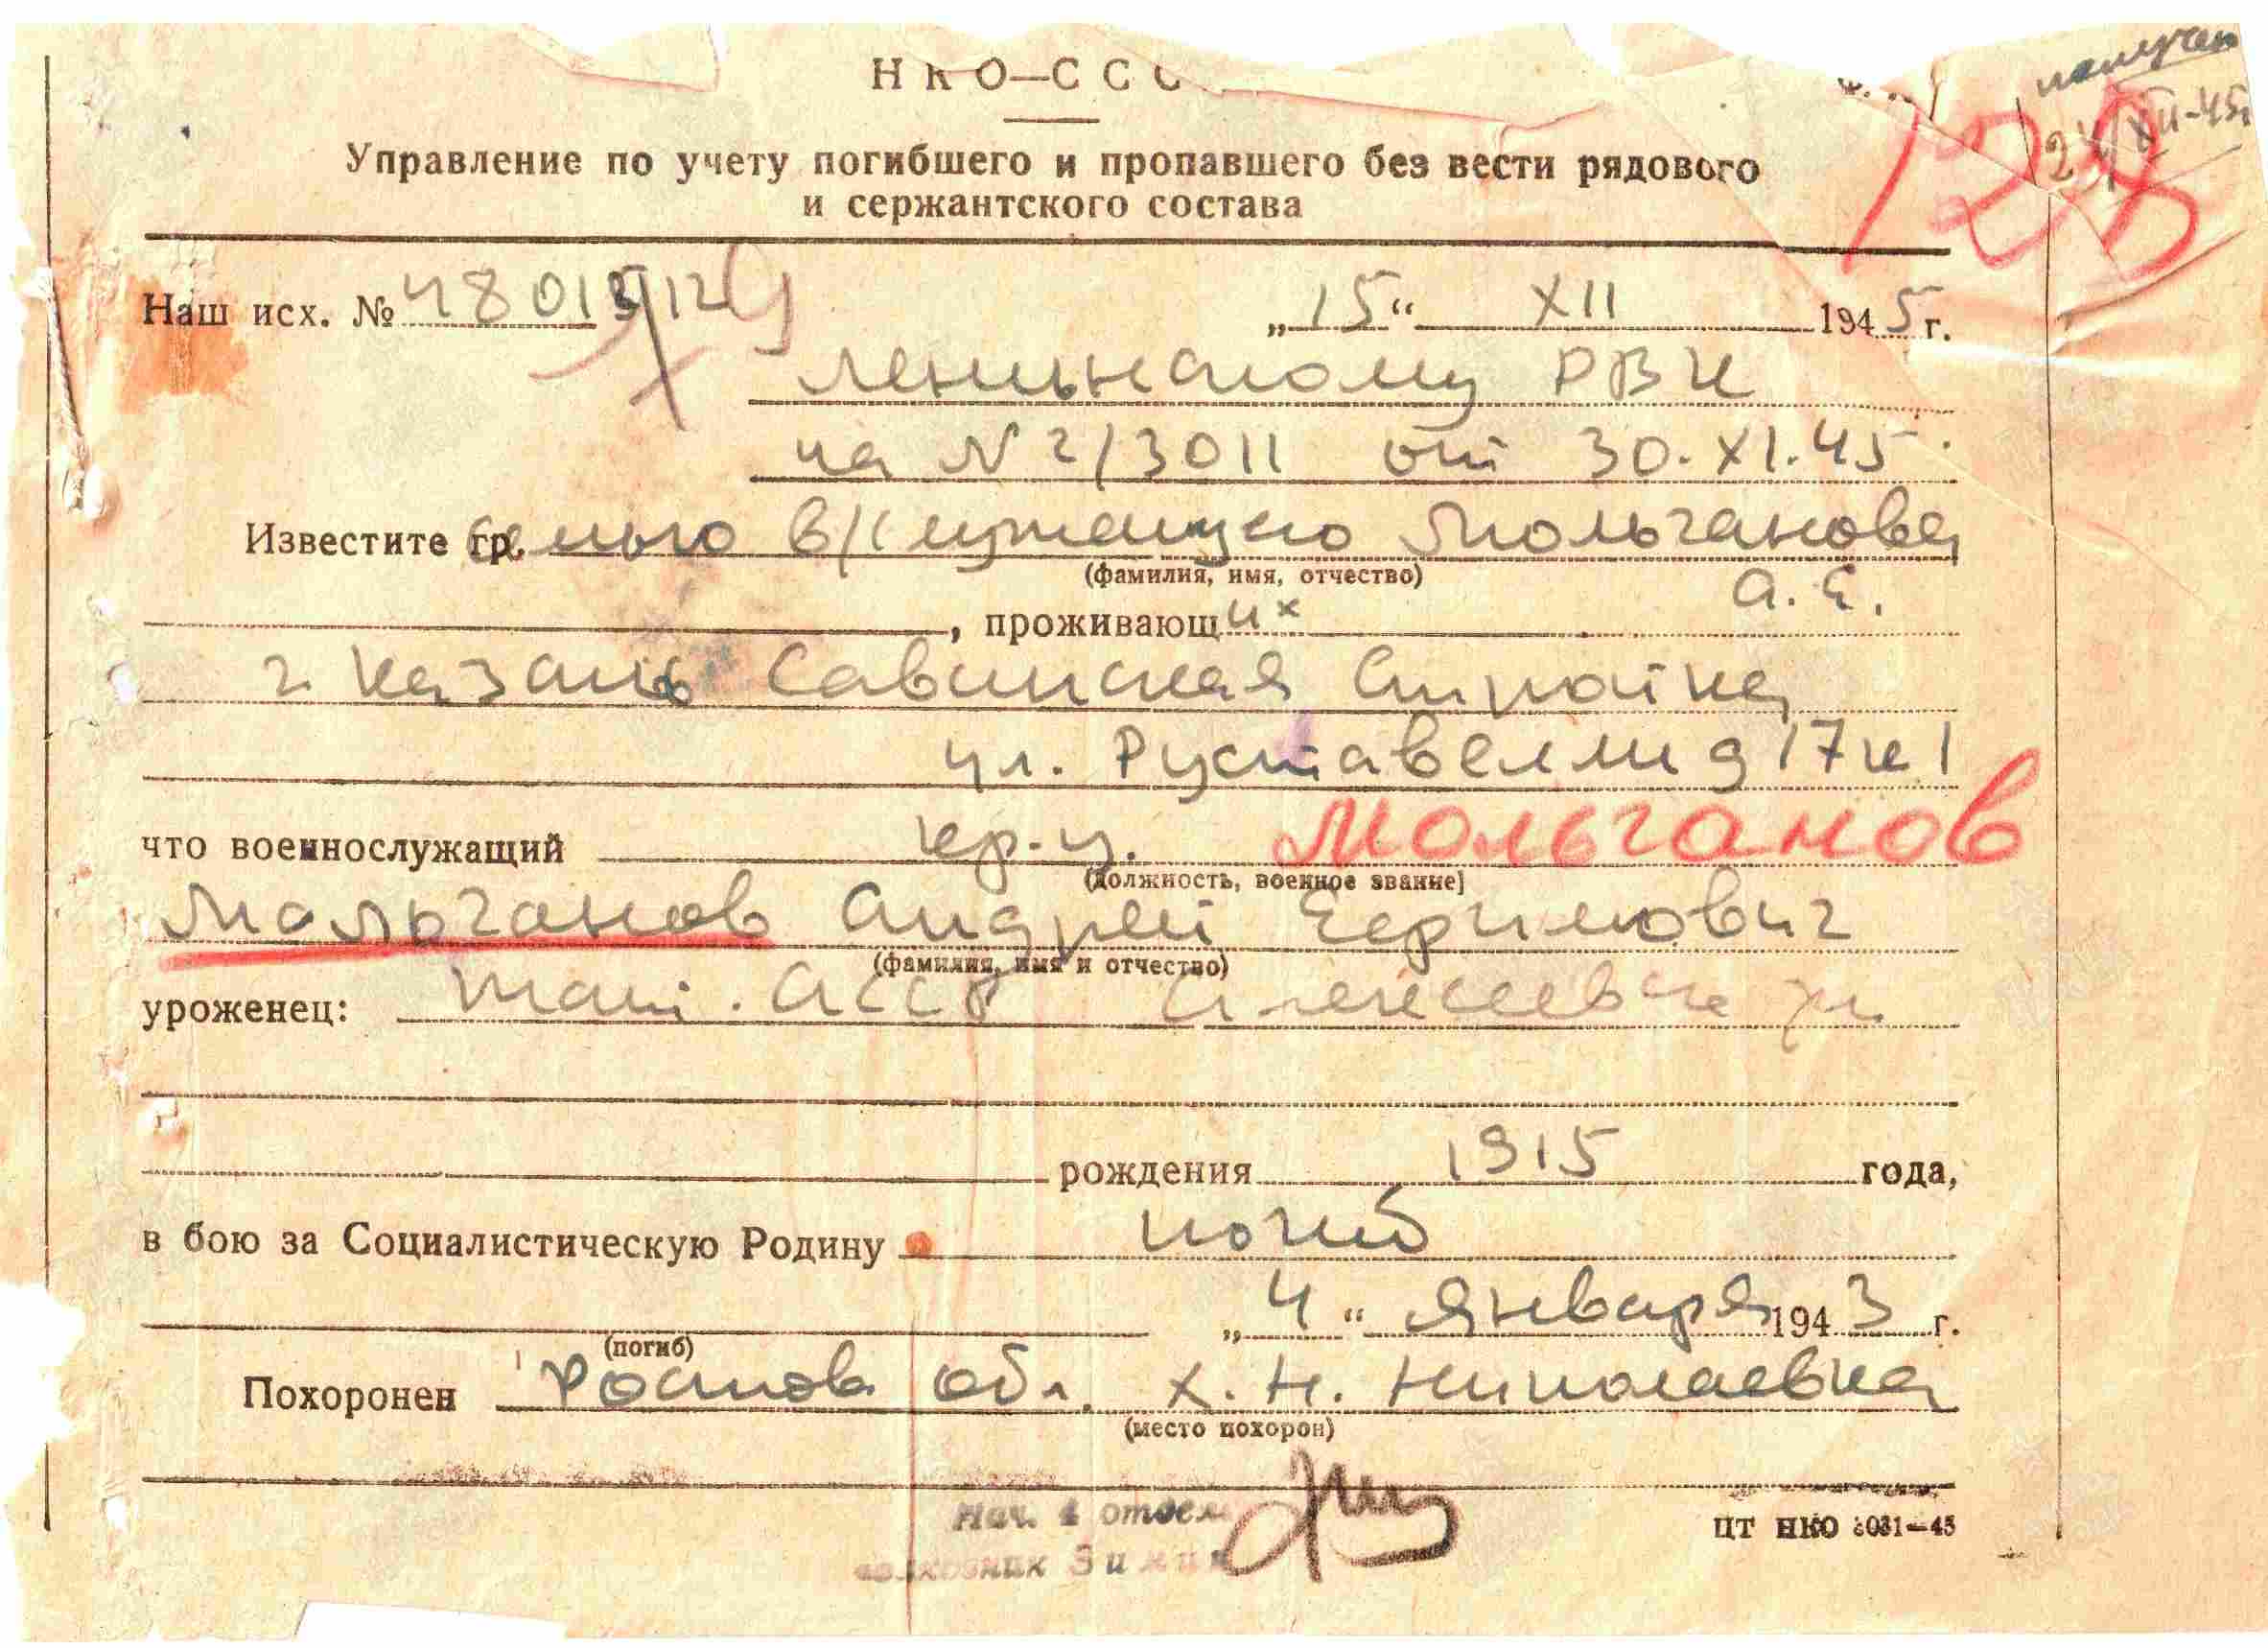 получен
24/XII-45г
НКО—ССС
128
Управление по учету погибшего и пропавшего без вести рядового
и сержантского состава
Наш исх. № „15“ XII 1945 г.
Леніньскому РВК
на N 2/3011 от 30.XI.45
Известите гр. семью в/служащую Мольганова
(фамилия, имя, отчество)
А. Е.
, проживающих
г. Казань Савинская Стройка
ул. Руставелли д 17 к 1
что военнослужащий кр-ц. Мольганов
(должность, военное звание)
Мольганов Андрей Ефимович
(фамилия, имя и отчество)
уроженец: Тат. АССР
рождения 1915 года,
в бою за Социалистическую Родину погиб
„4“ января 1943 г.
(погиб)
Похоронен Ростов обл. х. Н. Николаевка
(место похорон)
Нач. 1 отдел
полковник Зимин
ЦТ НКО 3031—45